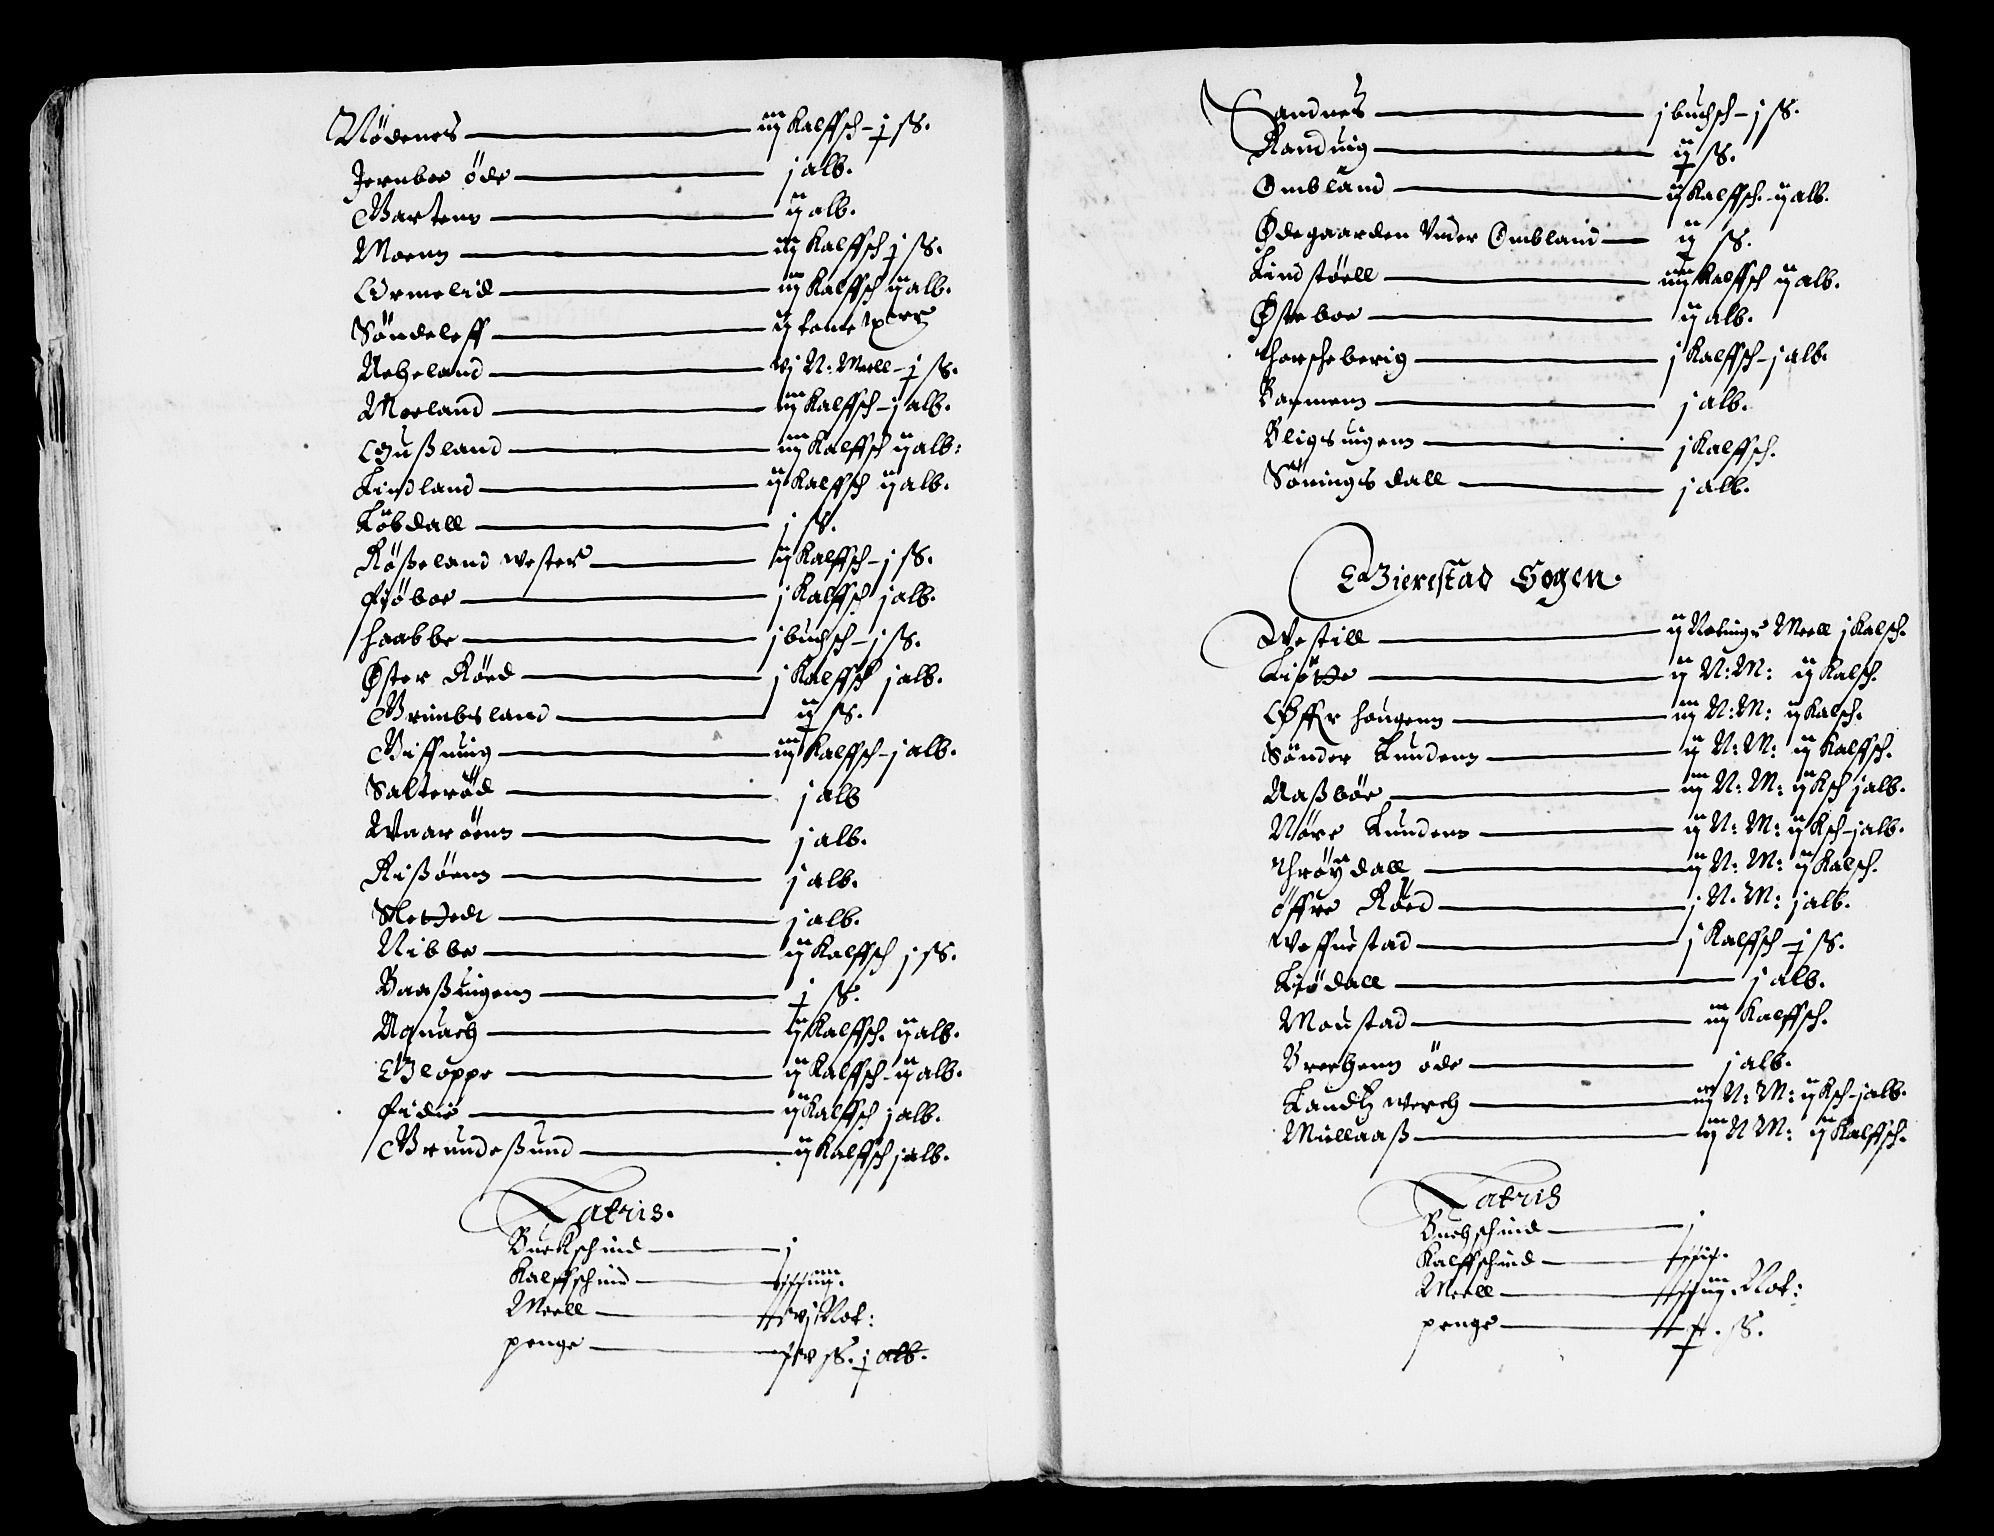 Nödenes — iij Kalffsch – j ß.
Jernboe öde — j alb.
Garten — ij alb.
Moenn — iij Kalffsch j ß.
Ormelid — iij Kalffsch ij alb.
Söndeleff — ij tone
Aeheland — vj N: Meell – j ß.
Moeland — iij Kalffsch – j alb.
Gußland — iij Kalffsch ij alb:
Lindland — ij Kalffsch ij alb.
Löbdall — j ß.
Rößeland wester — ij Kalffsch – j ß.
fiöboe — j Kalffsch j alb.
haabbe — j buchsch – j ß.
Øster Röed — j Kalffsch j alb.
Grimbsland — ij ß.
Giffuing — iij Kalffsch – j alb.
Salteröd — j alb
Waaröenn — j alb.
Rißöenn — j alb.
j alb.
Nibbe — ij Kalffsch j ß.
Baaßuigenn — j ß.
Aquach — ij Kalffsch. ij alb.
Gloppe — ij Kalffsch – ij alb.
fidie — ij Kalffsch j alb.
Grundesund — ij Kalffsch j alb.
Latris.
Buckschind — j
Kalffschind —
Meell — Not:
penge — ß. j alb.
Sandnes — j buchsch – j ß.
Randuig — ij ß.
Ombland — ij Kalffsch. – ij alb.
Ødegaarden Vnder Ombland — ij ß.
Lindstöell — iiij Kalffsch ij alb.
Østeboe — ij alb.
thorscheberig — j Kalffsch – j alb.
Barmenn — j alb.
Bligsuigenn — j Kalffsch.
Söningsdall — j alb.
Gierestad Sogen.
Westill — ij Netinger Meell j Kalsch.
Liötte — ij N: M: ij Kalsch.
Øffr hougenn — iij N: M: ij Kalsch.
Sönder Lundenn — ij N: M: ij Kalffsch.
Aaßböe — iij N: M: ij Ksch j alb.
Nöre Lundenn — ij N: M: ij Ksch – j alb.
Thröydall — ij N: M: ij Kalsch.
öffre Röed — j N. M: j alb.
Weffuestad — j Kalffsch – j ß.
Liödall — j alb.
Moustad — iij Kalffsch.
Brechenn öde — j alb.
Landtz werch — iij N: M: ij Ksch – j alb.
Mullaaß — iij N M: ij Kalffsch.
Latris
Buchschind — j
Kalffschind —
Meell — Not:
penge — ß.